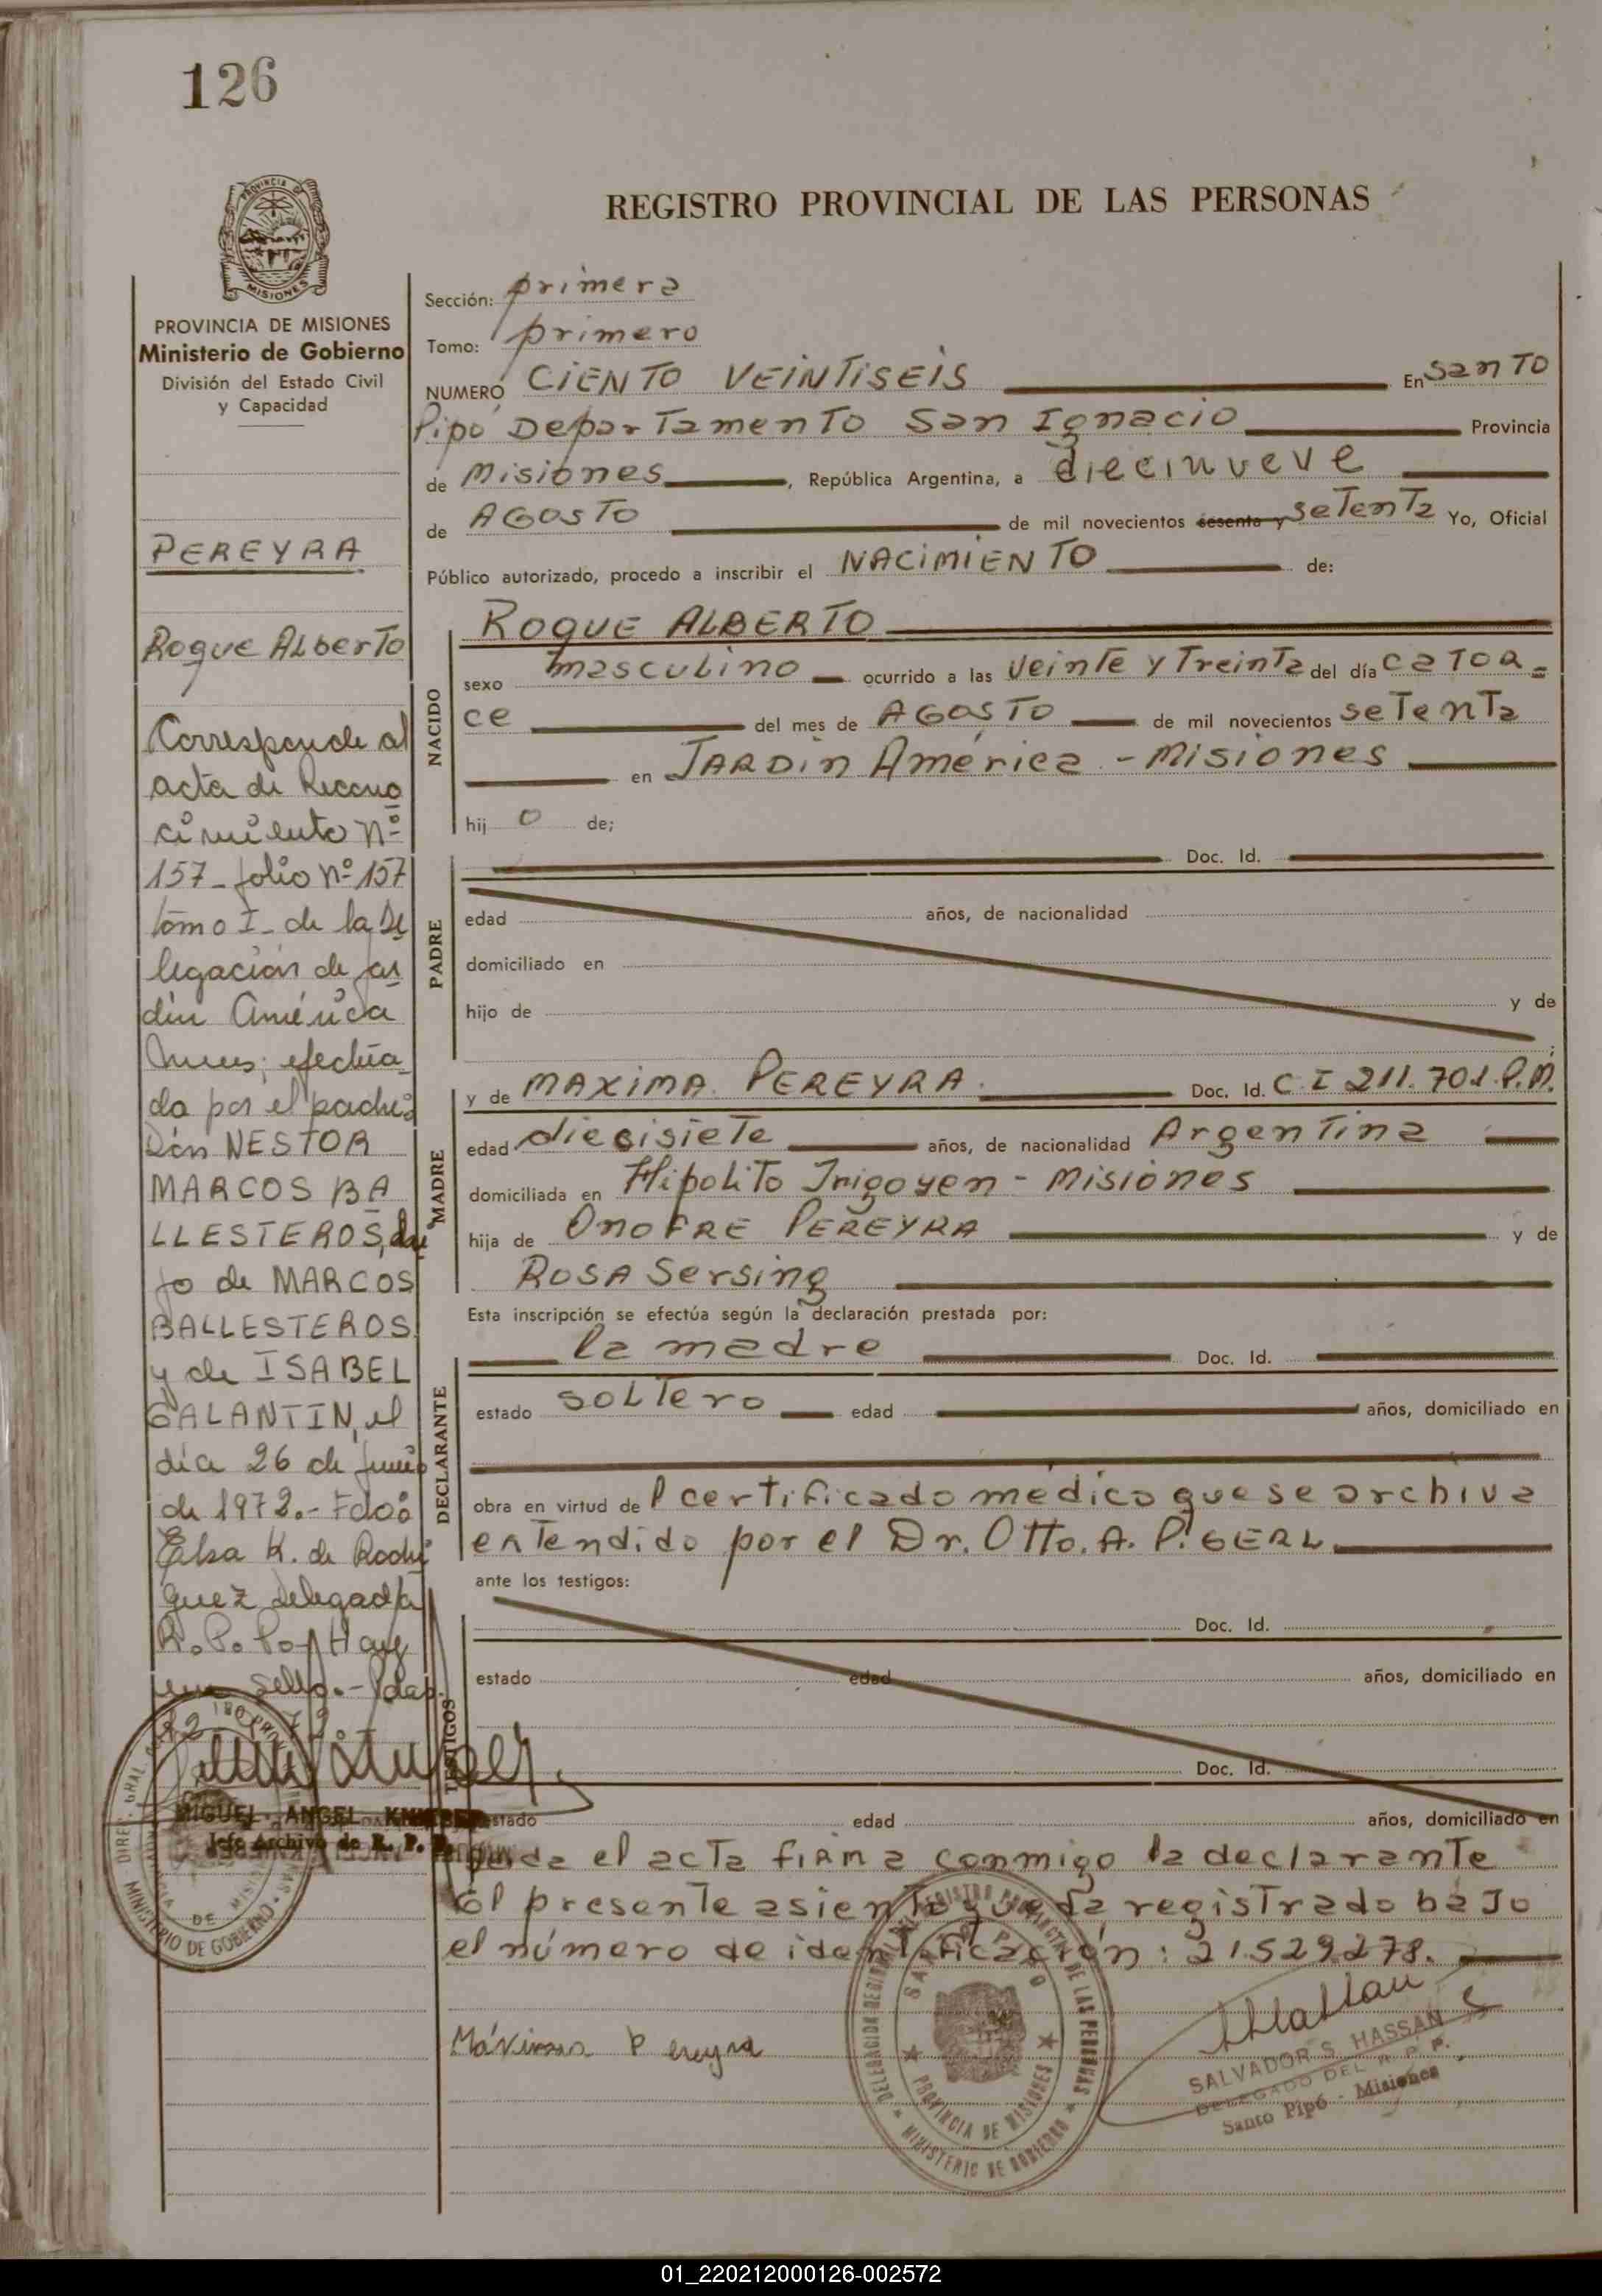 126
REGISTRO PROVINCIAL DE LAS PERSONAS
PROVINCIA DE MISIONES
Ministerio de Gobierno
División del Estado Civil
y Capacidad
PEREYRA
Roque ALberTo
Corresponde al
acta de Recono
cimiento Nº
157 - folio Nº 157
tomo I - de la De
legación de Jar
din América
Mnes; efectua
da por el padre
Don NESTOR
MARCOS BA
LLESTEROS, hi
jo de MARCOS
BALLESTEROS
y de ISABEL
GALANTIN, el
día 26 de junio
de 1972.- Fdo:
Elsa K. de Rodri
guez delegada
R. P. P. Hay
un sello.- Pdas.
MIGUEL ANGEL
Jefe Archivo de R. P. P.
MINISTERIO DE GOBIERNO
Sección: primera
Tomo: primero
NUMERO CIENTO VEINTISEIS En SanTo
Pipó DeparTamenTo San Ignacio Provincia
de Misiones, República Argentina, a diecinueve
de AGOSTO de mil novecientos sesenta y seTenTa Yo, Oficial
Público autorizado, procedo a inscribir el NACIMIENTO de:
NACIDO
ROQUE ALBERTO
sexo masculino ocurrido a las veinTe y TreinTa del día CaTor=
ce del mes de AGOSTO de mil novecientos seTenTa
en JARDin América - Misiones
hij o de;
PADRE
Doc. Id.
edad años, de nacionalidad
domiciliado en
hijo de y de
MADRE
y de MAXIMA PEREYRA. Doc. Id. C I 211.701.P.M.
edad diecisieTe años, de nacionalidad ArgenTina
domiciliada en HipoLiTo Irigoyen - Misiones
hija de OnoFRE PEREYRA y de
ROSA Sersing
Esta inscripción se efectúa según la declaración prestada por:
DECLARANTE
la madre Doc. Id.
estado SOLTero edad años, domiciliado en
obra en virtud de l certificado medico que se archiva
exTendido por el Dr. Otto. A. P. GERL.
ante los testigos:
TESTIGOS
Doc. Id.
estado edad años, domiciliado en
Doc. Id.
estado edad años, domiciliado en
el acTa firma conmigo la declaranTe
El presenTe asienTo queda regisTrado baJo
el número de idenTificación: 21.529.278.
Máxima Pereyra
DELEGACION REGISTRO PROVINCIAL DE LAS PERSONAS
SANTO PIPO
PROVINCIA DE MISIONES
MINISTERIO DE GOBIERNO
SALVADOR S. HASSAN
DELEGADO DEL R. P. P.
Santo Pipó - Misiones
01_220212000126-002572